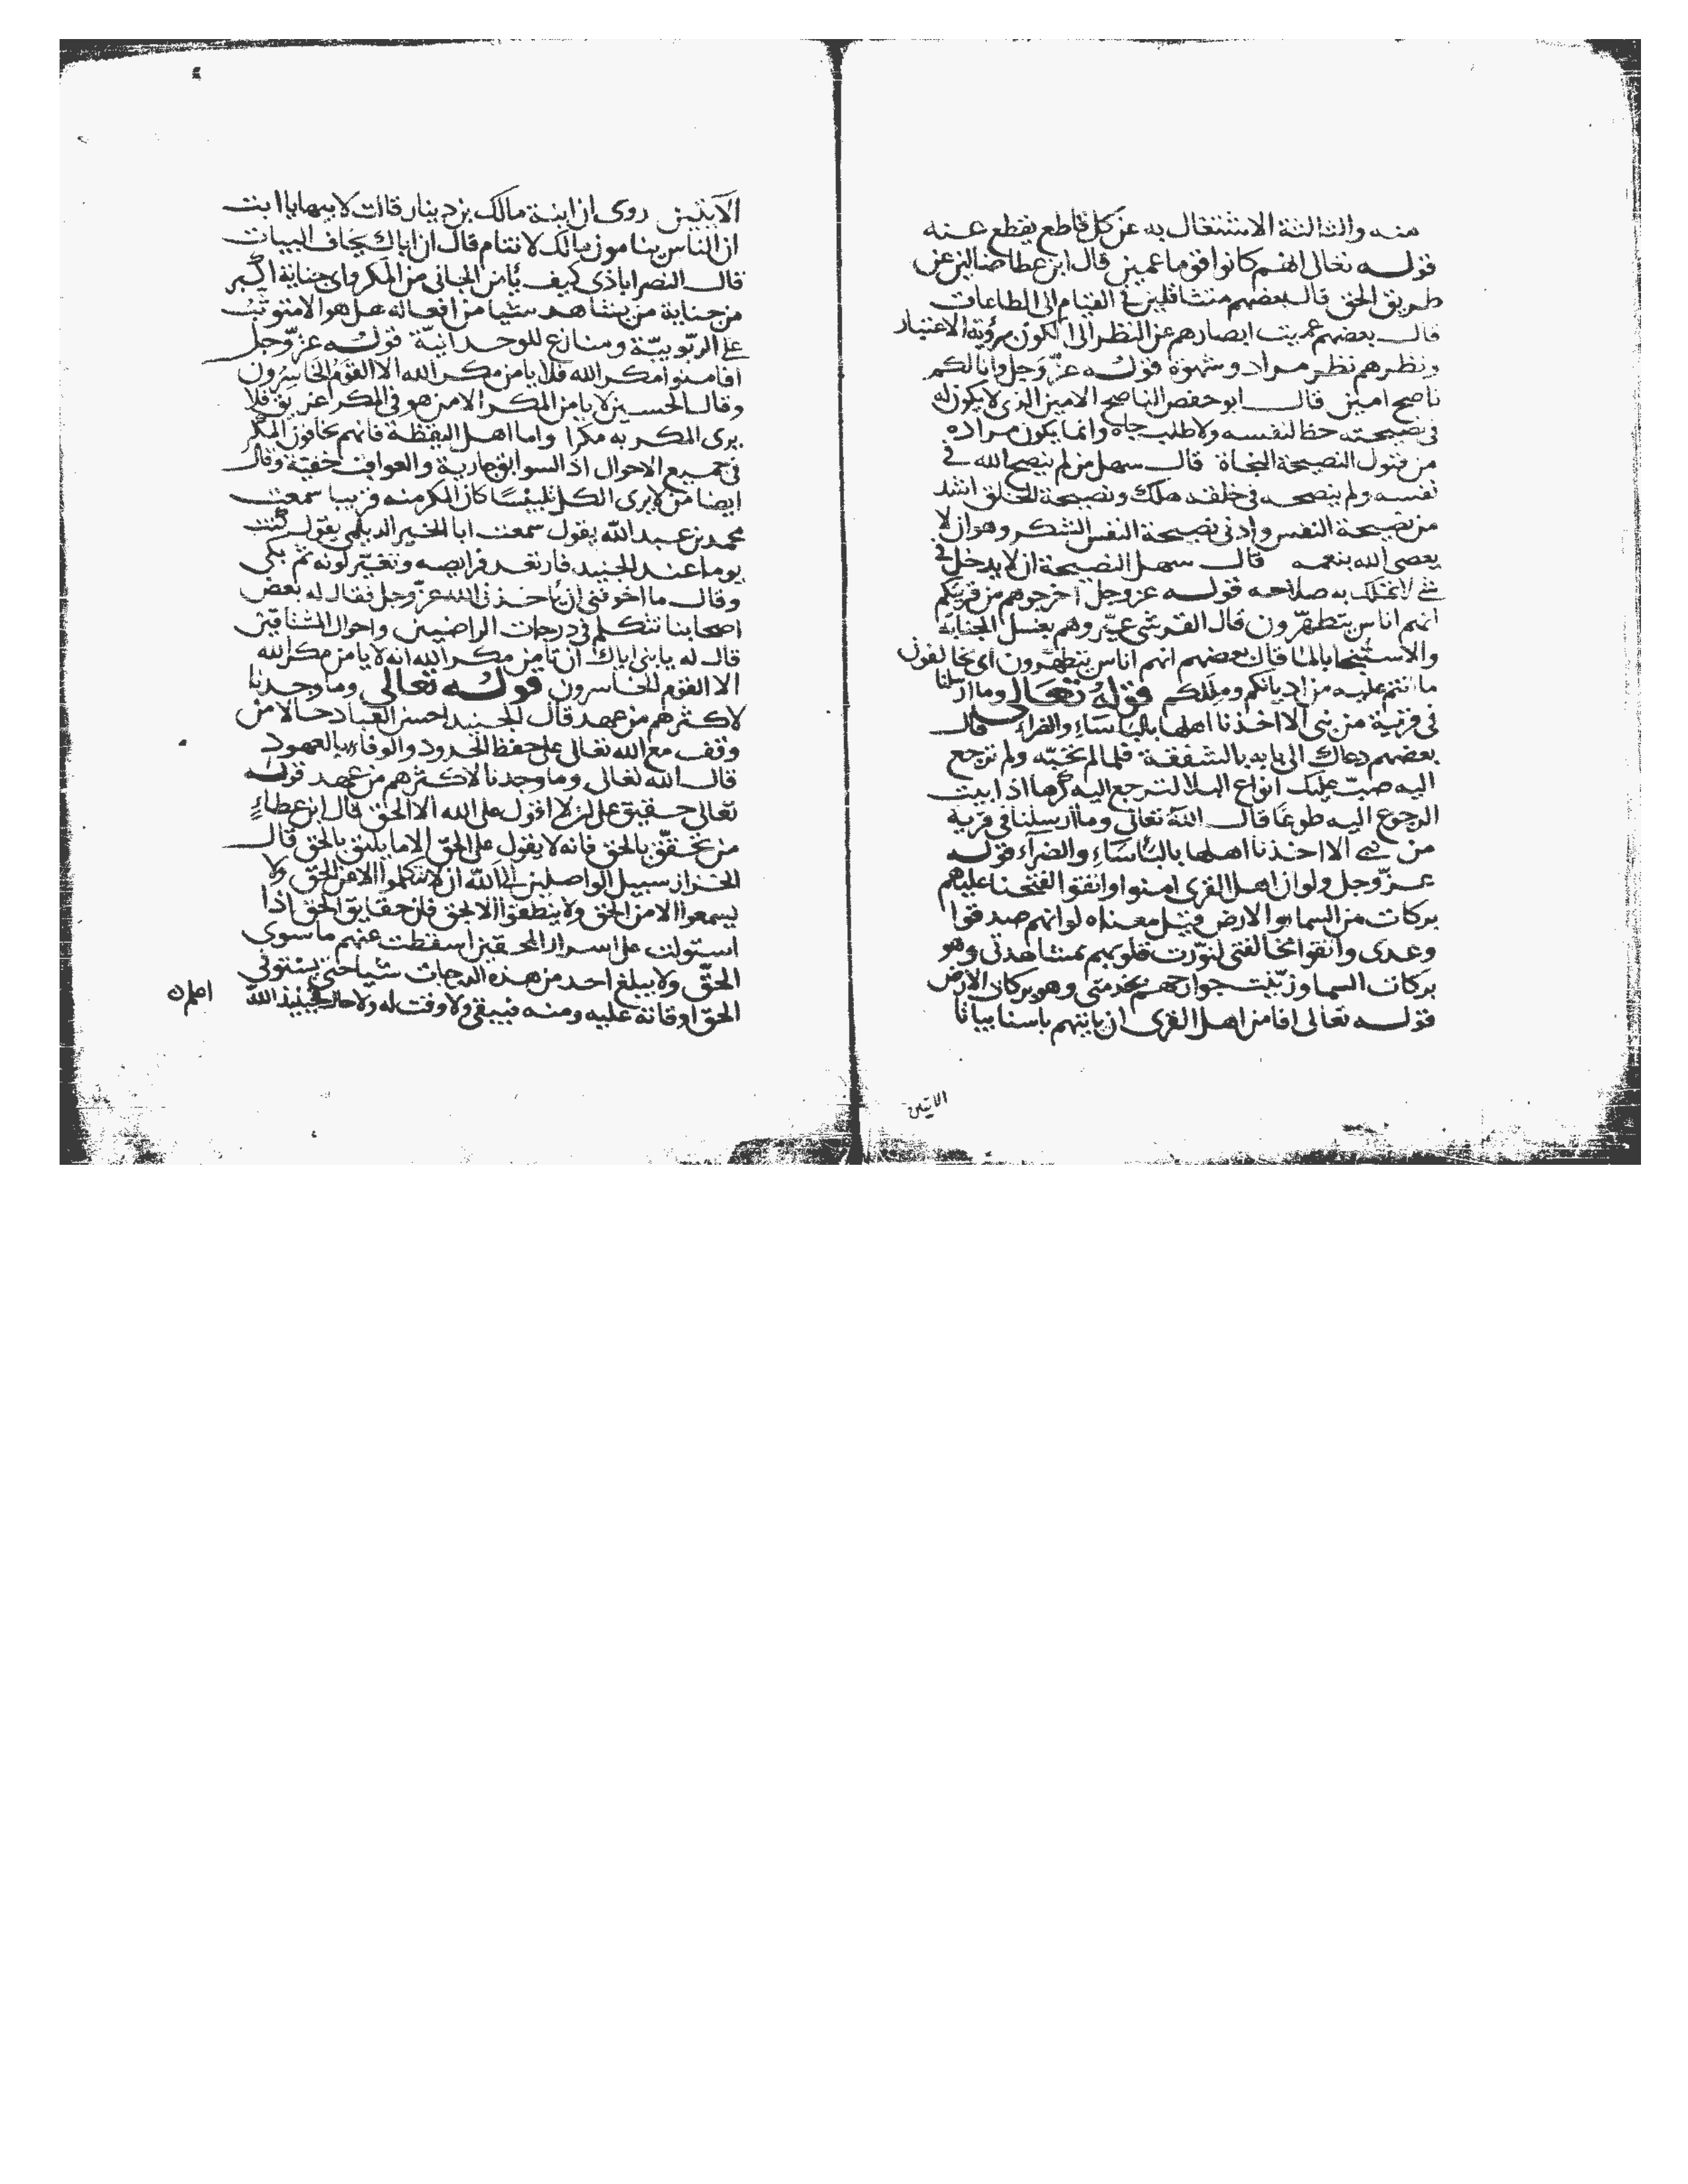 منه والثالثة الاشتغال به عن كل قاطع يقطع عنه
قوله تعالى انهم كانوا قوما عمين قال ابن عطا ضالين عن
طريق الحق قال بعضهم متثاقلين في القيام الى الطاعات
قال بعضهم عميت ابصارهم عن النظر الى الكون برؤية الاعتبار
ونظرهم نظر مراد وشهوة قوله عز وجل وانا لكم
ناصح امين قال ابو حفص الناصح الامين الذي لا يكون له
في نصيحته حظ لنفسه ولا طلب جاه وانما يكون مراده
من قبول النصيحة النجاة قال سهل من لم ينصح الله في
نفسه ولم ينصحه في خلقه هلك ونصيحة الخلق اشد
من نصيحة النفس وادنى نصيحة النفس الشكر وهو ان لا
يعصى الله بنعمه قال سهل النصيحة ان لا يدخل في
شئ لا تملك به صلاحه قوله عز وجل اخرجوهم من قريتكم
انهم اناس يتطهرون قال القرشي عيّر وهم بغسل الجنابة
والاستنجا بالما قال بعضهم انهم اناس يتطهرون اي يخالفون
ما انتم عليه من اديانكم ومللكم قوله تعالى وما ارسلنا
في قرية من نبي الا اخذنا اهلها بالبأساء والضراء قال
بعضهم دعاك الى بابه بالشفقة فلما لم تجبه ولم ترجع
اليه صبّ عليك انواع البلا لترجع اليه كرها اذا ابيت
الرجوع اليه طوعا قال الله تعالى وما ارسلنا في قرية
من نبي الا اخذنا اهلها بالبأساء والضراء قوله
عز وجل ولو ان اهل القرى امنوا واتقوا لفتحنا عليهم
بركات من السما والارض قيل معناه لو انهم صدقوا
وعدى واتقوا مخالفتى لنوّرت قلوبهم بمشاهدتى وهو
بركات السما وزيّنت جوارحهم بخدمتى وهو بركات الارض
قوله تعالى افامن اهل القرى ان ياتيهم باسنا بياتا
الايتين
الآيتين روى ان ابنة مالك بن دينار قالت لابيها يا ابت
ان الناس ينامون مالك لا تنام قال ان اباك يخاف البيات
قال النصراباذى كيف يأمن الجانى من المكر واى جناية اكبر
من جناية من يشاهد شيا من افعاله هل هو الا متوثب
على الربوبيّة ومنازع للوحدانيّة قوله عز وجل
افامنوا مكر الله فلا يامن مكر الله الا القوم الخاسرون
وقال الحسين لا يامن المكر الا من هو في المكر غريق فلا
يرى المكر به مكرا واما اهل اليقظة فانهم يخافون المكر
في جميع الاحوال اذ السوابق جارية والعواقب خفيّة وقال
ايضا من لا يرى الكل تلبيسًا كان المكر منه قريبا سمعت
محمد بن عبد الله يقول سمعت ابا الخير الديلمي يقول كنت
يوما عند الجنيد فارتعد فرايصه وتغيّر لونه ثم بكى
وقال ما اخوفنى ان يأخذنى الله عز وجل فقال له بعض
اصحابنا تتكلم في درجات الراضين واحوال المشتاقين
قال له يا بنى اياك ان تأمن مكر الله انه لا يأمن مكر الله
الا القوم الخاسرون قوله تعالى وما وجدنا
لاكثرهم من عهد قال الجنيد احسن العباد حالا من
وقف مع الله تعالى على حفظ الحدود والوفاء بالعهود
قال الله تعالى وما وجدنا لاكثرهم من عهد قوله
تعالى حقيق على ان لا اقول على الله الا الحق قال ابن عطاء
من تحقّق بالحق فانه لا يقول على الحق الا ما يليق بالحق قال
الخراز سبيل الواصلين الى الله ان لا يتكلموا الا عن الحق ولا
يسمعوا الا من الحق ولا ينطقوا الا بالحق فان حقايق الحق اذا
استولت على اسرار المحققين اسقطت عنهم ما سوى
الحق ولا يبلغ احد من هذه الدرجات شيا حتى يستوفى
الحق اوقاته عليه ومنه فيبقى ولا وقت له ولا حال الجنيد الله
اعلم ان